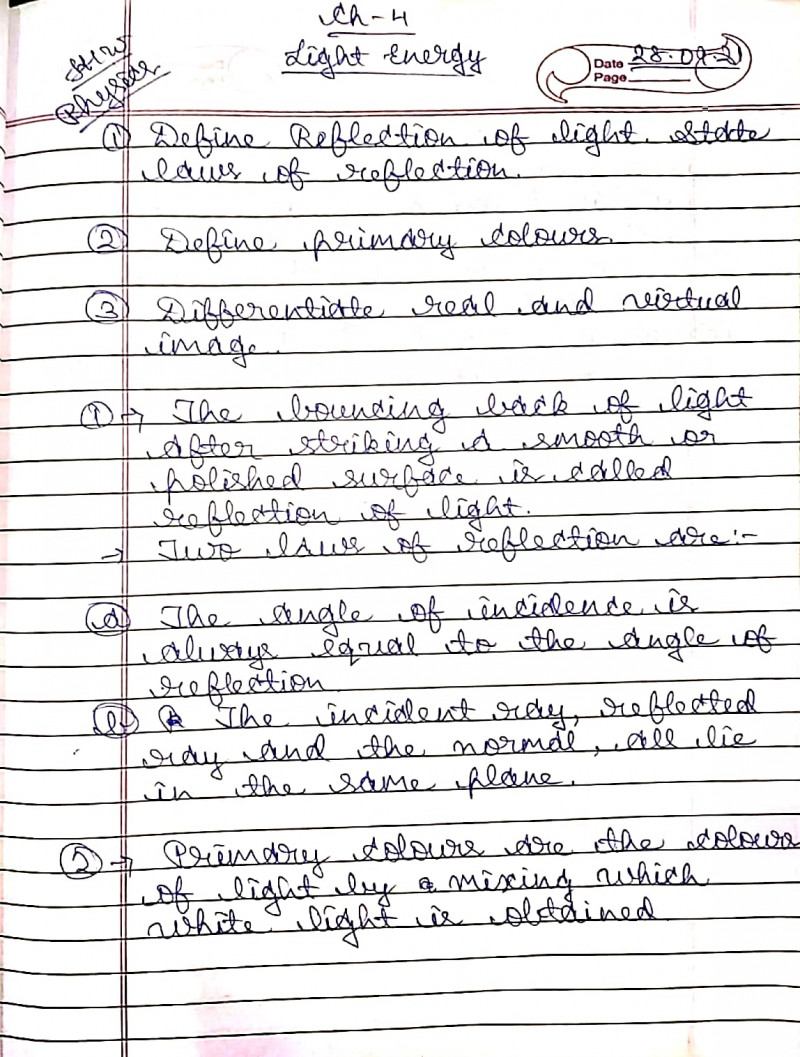 Ch-4
Light Energy
H/W
Physics
Date 28.09.21
Page
① Define Reflection of light. State
laws of reflection.
② Define primary colours.
③ Differentiate real and virtual
image.
① → The bouncing back of light
after striking a smooth or
polished surface is called
reflection of light.
→ Two laws of reflection are:-
ⓐ The angle of incidence is
always equal to the angle of
reflection
ⓑ The incident ray, reflected
ray and the normal, all lie
in the same plane.
② → Primary colours are the colours
of light by mixing which
white light is obtained